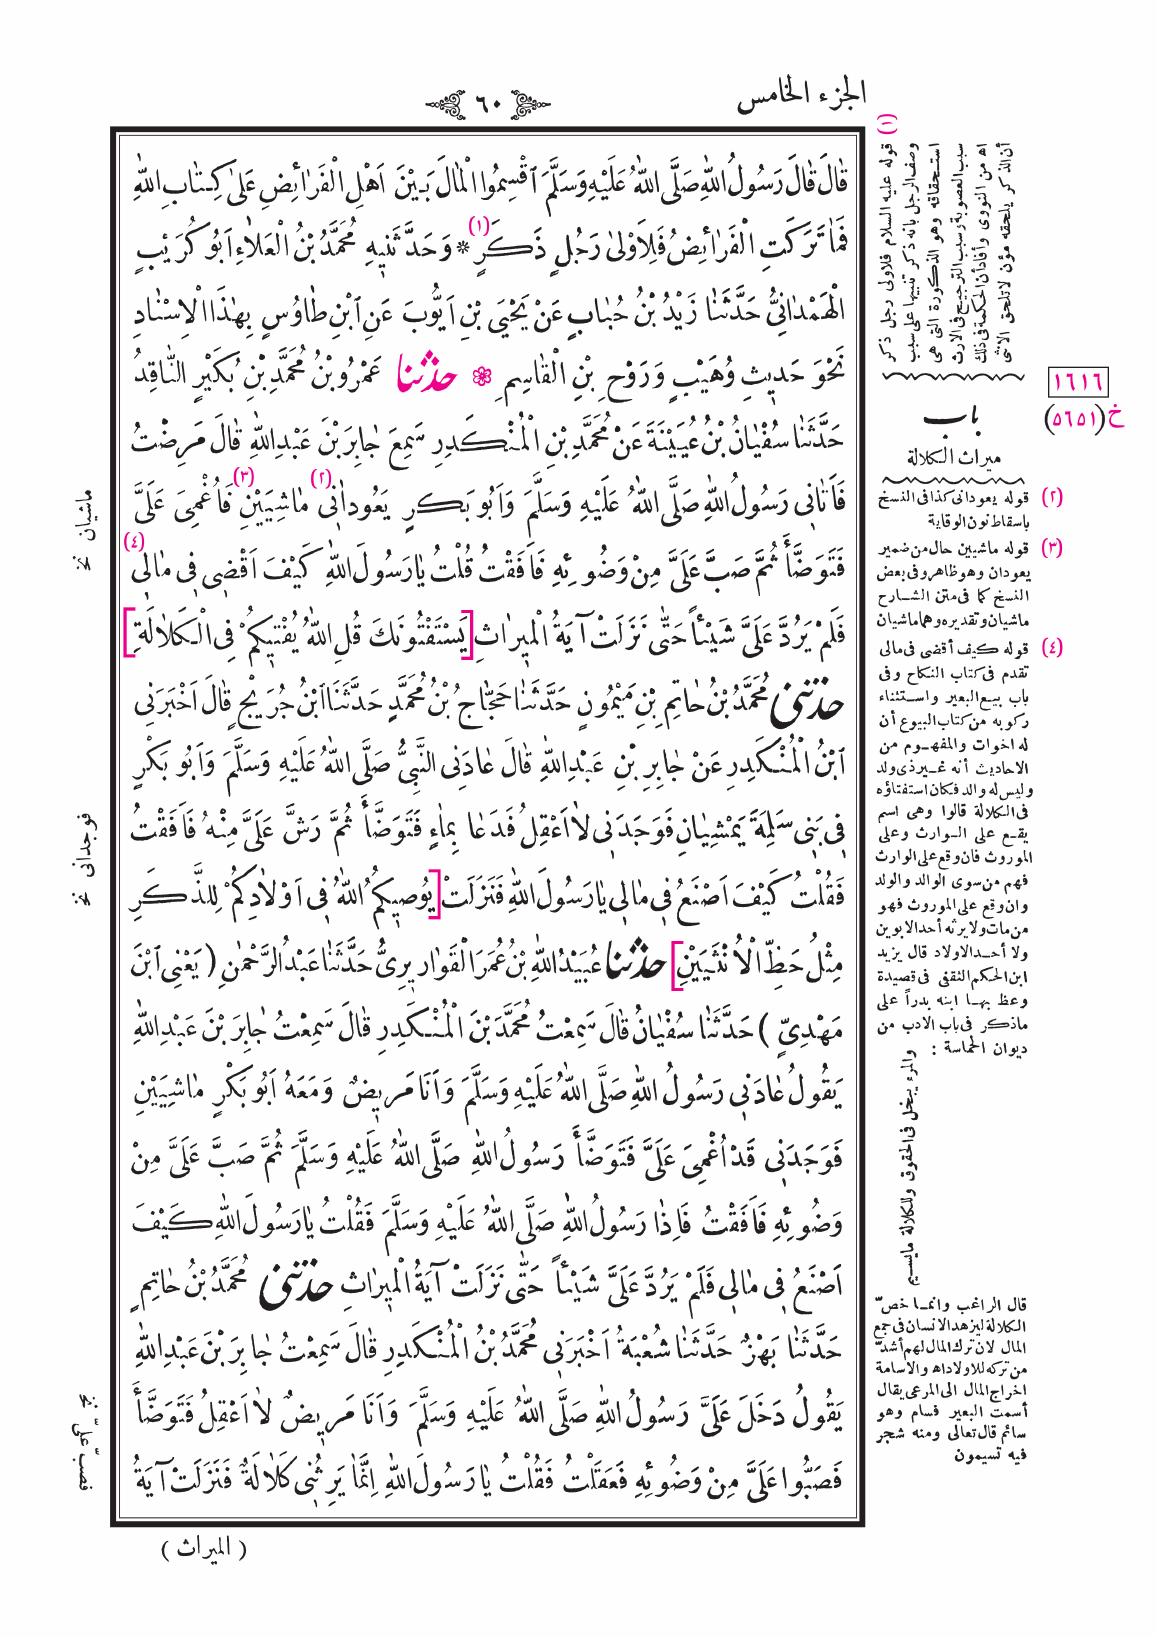 الجزء الخامس
٦٠
قَالَ قَالَ رَسُولُ اللهِ صَلَّى اللهُ عَلَيْهِ وَسَلَّمَ اَقْسِمُوا الْمَالَ بَيْنَ اَهْلِ الْفَرَائِضِ عَلٰى كِتَابِ اللهِ
فَمَا تَرَكَتِ الْفَرَائِضُ فَلِاَوْلٰى رَجُلٍ ذَكَرٍ (١) * وَحَدَّثَنِيهِ مُحَمَّدُ بْنُ الْعَلَاءِ اَبُو كُرَيْبٍ
الْهَمْدَانِيُّ حَدَّثَنَا زَيْدُ بْنُ حُبَابٍ عَنْ يَحْيَى بْنِ اَيُّوبَ عَنِ ابْنِ طَاوُسٍ بِهٰذَا الْاِسْنَادِ
نَحْوَ حَدِيثِ وُهَيْبٍ وَرَوْحِ بْنِ الْقَاسِمِ ۞ حَدَّثَنَا عَمْرُو بْنُ مُحَمَّدِ بْنِ بُكَيْرٍ النَّاقِدُ
حَدَّثَنَا سُفْيَانُ بْنُ عُيَيْنَةَ عَنْ مُحَمَّدِ بْنِ الْمُنْكَدِرِ سَمِعَ جَابِرَ بْنَ عَبْدِاللهِ قَالَ مَرِضْتُ
فَاَتَانِي رَسُولُ اللهِ صَلَّى اللهُ عَلَيْهِ وَسَلَّمَ وَاَبُو بَكْرٍ يَعُودَانِي (٢) مَاشِيَيْنِ (٣) فَاُغْمِيَ عَلَيَّ
فَتَوَضَّأَ ثُمَّ صَبَّ عَلَيَّ مِنْ وَضُوئِهِ فَاَفَقْتُ قُلْتُ يَارَسُولَ اللهِ كَيْفَ اَقْضِي فِي مَالِي (٤)
فَلَمْ يَرُدَّ عَلَيَّ شَيْئاً حَتّٰى نَزَلَتْ آيَةُ الْمِيرَاثِ [يَسْتَفْتُونَكَ قُلِ اللهُ يُفْتِيكُمْ فِي الْكَلَالَةِ]
حَدَّثَنِي مُحَمَّدُ بْنُ حَاتِمِ بْنِ مَيْمُونٍ حَدَّثَنَا حَجَّاجُ بْنُ مُحَمَّدٍ حَدَّثَنَا ابْنُ جُرَيْجٍ قَالَ اَخْبَرَنِي
ابْنُ الْمُنْكَدِرِ عَنْ جَابِرِ بْنِ عَبْدِاللهِ قَالَ عَادَنِي النَّبِيُّ صَلَّى اللهُ عَلَيْهِ وَسَلَّمَ وَاَبُو بَكْرٍ
فِي بَنِي سَلِمَةَ يَمْشِيَانِ فَوَجَدَنِي لَا اَعْقِلُ فَدَعَا بِمَاءٍ فَتَوَضَّأَ ثُمَّ رَشَّ عَلَيَّ مِنْهُ فَاَفَقْتُ
فَقُلْتُ كَيْفَ اَصْنَعُ فِي مَالِي يَارَسُولَ اللهِ فَنَزَلَتْ [يُوصِيكُمُ اللهُ فِي اَوْلَادِكُمْ لِلذَّكَرِ
مِثْلُ حَظِّ الْاُنْثَيَيْنِ] حَدَّثَنَا عُبَيْدُاللهِ بْنُ عُمَرَ الْقَوَارِيرِيُّ حَدَّثَنَا عَبْدُالرَّحْمٰنِ (يَعْنِي ابْنَ
مَهْدِيٍّ) حَدَّثَنَا سُفْيَانُ قَالَ سَمِعْتُ مُحَمَّدَ بْنَ الْمُنْكَدِرِ قَالَ سَمِعْتُ جَابِرَ بْنَ عَبْدِاللهِ
يَقُولُ عَادَنِي رَسُولُ اللهِ صَلَّى اللهُ عَلَيْهِ وَسَلَّمَ وَاَنَا مَرِيضٌ وَمَعَهُ اَبُو بَكْرٍ مَاشِيَيْنِ
فَوَجَدَنِي قَدْ اُغْمِيَ عَلَيَّ فَتَوَضَّأَ رَسُولُ اللهِ صَلَّى اللهُ عَلَيْهِ وَسَلَّمَ ثُمَّ صَبَّ عَلَيَّ مِنْ
وَضُوئِهِ فَاَفَقْتُ فَاِذَا رَسُولُ اللهِ صَلَّى اللهُ عَلَيْهِ وَسَلَّمَ فَقُلْتُ يَارَسُولَ اللهِ كَيْفَ
اَصْنَعُ فِي مَالِي فَلَمْ يَرُدَّ عَلَيَّ شَيْئاً حَتّٰى نَزَلَتْ آيَةُ الْمِيرَاثِ حَدَّثَنِي مُحَمَّدُ بْنُ حَاتِمٍ
حَدَّثَنَا بَهْزٌ حَدَّثَنَا شُعْبَةُ اَخْبَرَنِي مُحَمَّدُ بْنُ الْمُنْكَدِرِ قَالَ سَمِعْتُ جَابِرَ بْنَ عَبْدِاللهِ
يَقُولُ دَخَلَ عَلَيَّ رَسُولُ اللهِ صَلَّى اللهُ عَلَيْهِ وَسَلَّمَ وَاَنَا مَرِيضٌ لَا اَعْقِلُ فَتَوَضَّأَ
فَصَبُّوا عَلَيَّ مِنْ وَضُوئِهِ فَعَقَلْتُ فَقُلْتُ يَارَسُولَ اللهِ اِنَّمَا يَرِثُنِي كَلَالَةٌ فَنَزَلَتْ آيَةُ
(الميراث)
(١) قوله عليه السلام فلاولى رجل ذكر
وصف الرجل بأنه ذكر تنبيها على سبب
استحقاقه وهو الذكورة التى هى
سبب العصوبة وسبب الترجيح فى الارث
اه من النووى وأفاد أن الحكمة فى ذلك
أن الذكر يلحقه مؤن لاتلحق الانثى
١٦١٦
خ (٥٦٥١)
باب
ميراث الكلالة
(٢) قوله يعودانى كذا فى النسخ
باسقاط نون الوقاية
(٣) قوله ماشيين حال من ضمير
يعودان وهو ظاهر وفى بعض
النسخ كما فى متن الشارح
ماشيان وتقديره وهما ماشيان
(٤) قوله كيف أقضى فى مالى
تقدم فى كتاب النكاح وفى
باب بيع البعير واستثناء
ركوبه من كتاب البيوع أن
له اخوات والمفهوم من
الاحاديث أنه غير ذى ولد
وليس له والد فكان استفتاؤه
فى الكلالة قالوا وهى اسم
يقع على الوارث وعلى
الموروث فان وقع على الوارث
فهم من سوى الوالد والولد
وان وقع على الموروث فهو
من مات ولا يرثه أحد الابوين
ولا أحد الاولاد قال يزيد
ابن الحكم الثقفى فى قصيدة
وعظ بها ابنه بدراً على
ماذكر فى باب الادب من
ديوان الحماسة :
والمرء يبخل فى الحقوق وللكلالة مايسيم
قال الراغب وانما خصّ
الكلالة ليزهد الانسان فى جمع
المال لان ترك المال لهم أشدّ
من تركه للاولاد اه والاسامة
اخراج المال الى المرعى يقال
أسمت البعير فسام وهو
سائم قال تعالى ومنه شجر
فيه تسيمون
ماشيان نخ
فوجدانى نخ
فصبّ علىّ نخ